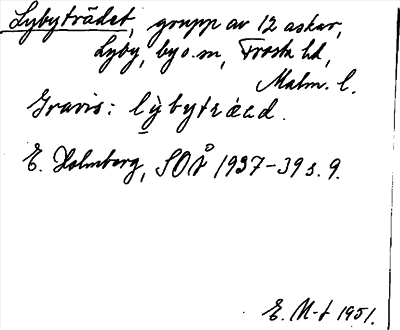 Lybyträdet, grupp av 12 askar,
Lyby, by o. sn, Frosta hd,
Malm. l.
Gravis: lỳbytrácd.
E. Holmberg, SOÅ 1937-39 s. 9.
E. M-t 1951.